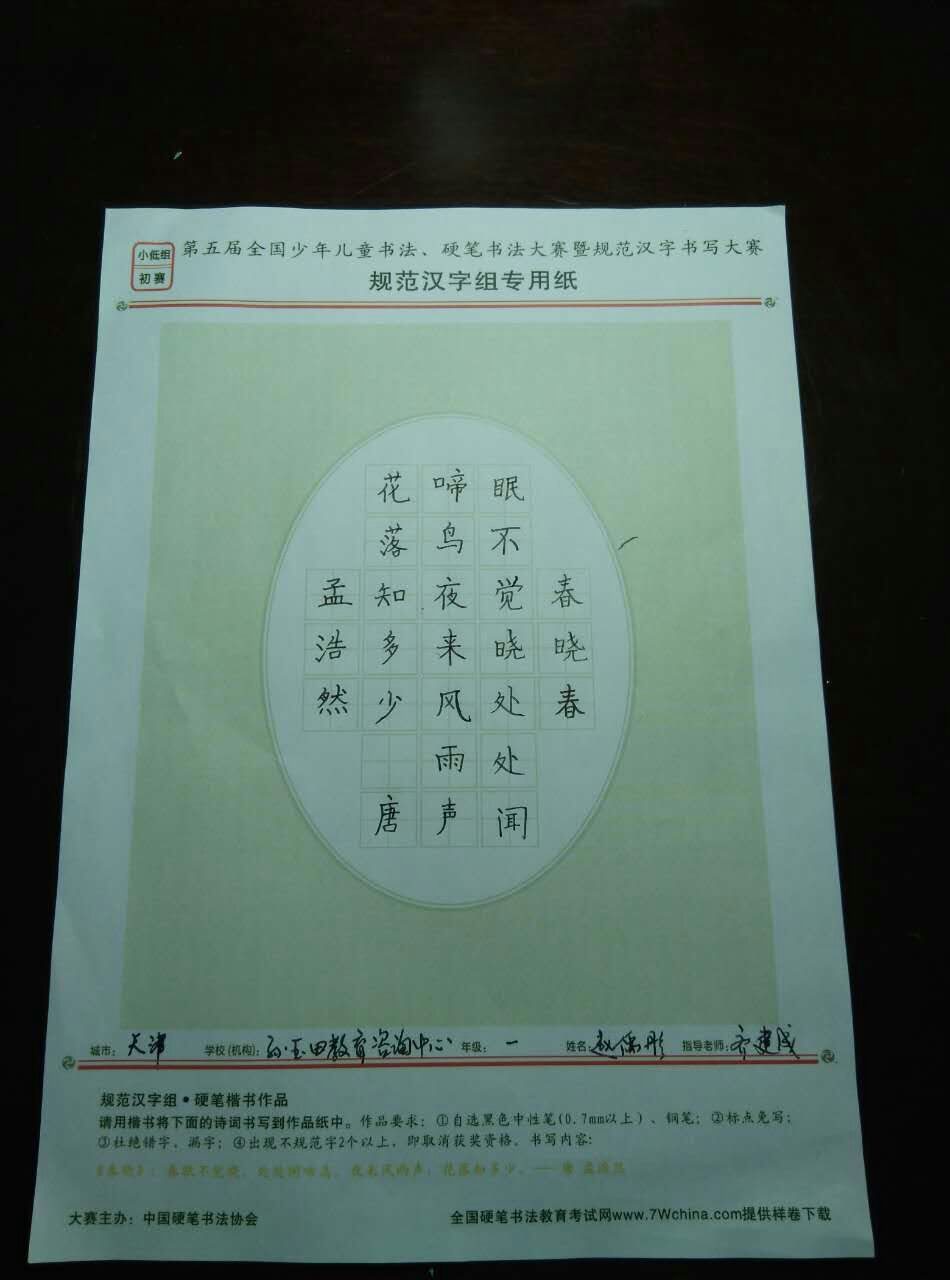 小低组
初赛
第五届全国少年儿童书法、硬笔书法大赛暨规范汉字书写大赛
规范汉字组专用纸
春晓春
眠不觉晓处处闻
啼鸟夜来风雨声
花落知多少 唐
孟浩然
城市：天津 学校(机构)：孙玉田教育咨询中心 年级：一 姓名：赵儒彤 指导老师：齐建成
规范汉字组•硬笔楷书作品
请用楷书将下面的诗词书写到作品纸中。作品要求：①自选黑色中性笔(0.7mm以上)、钢笔；②标点免写；
③杜绝错字、漏字；④出现不规范字2个以上，即取消获奖资格。书写内容：
《春晓》：春眠不觉晓，处处闻啼鸟。夜来风雨声，花落知多少。——唐 孟浩然
大赛主办：中国硬笔书法协会 全国硬笔书法教育考试网www.7Wchina.com提供样卷下载